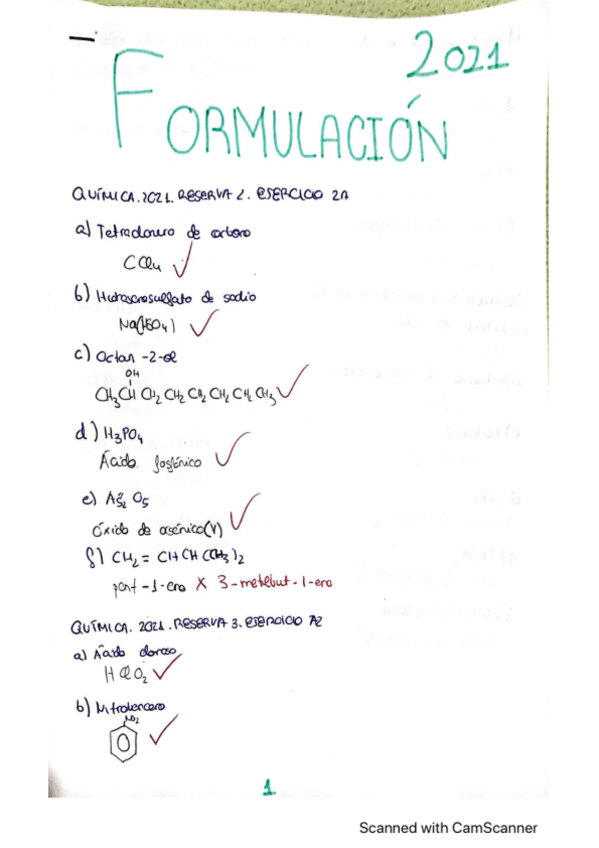 2021
FORMULACIÓN
QUÍMICA. 2021. RESERVA 2. EJERCICIO 2A
a) Tetracloruro de carbono
CCl4
b) Hidrogenosulfato de sodio
Na(HSO4)
c) Octan-2-ol
OH
CH3CH CH2 CH2 CH2 CH2 CH2 CH3
d) H3PO4
Ácido fosfórico
e) As2 O5
Óxido de arsénico(V)
f) CH2 = CHCH(CH3)2
pent-1-eno X 3-metilbut-1-eno
QUÍMICA. 2021. RESERVA 3. EJERCICIO A2
a) Ácido cloroso
HClO2
b) Nitrobenceno
NO2
1
Scanned with CamScanner